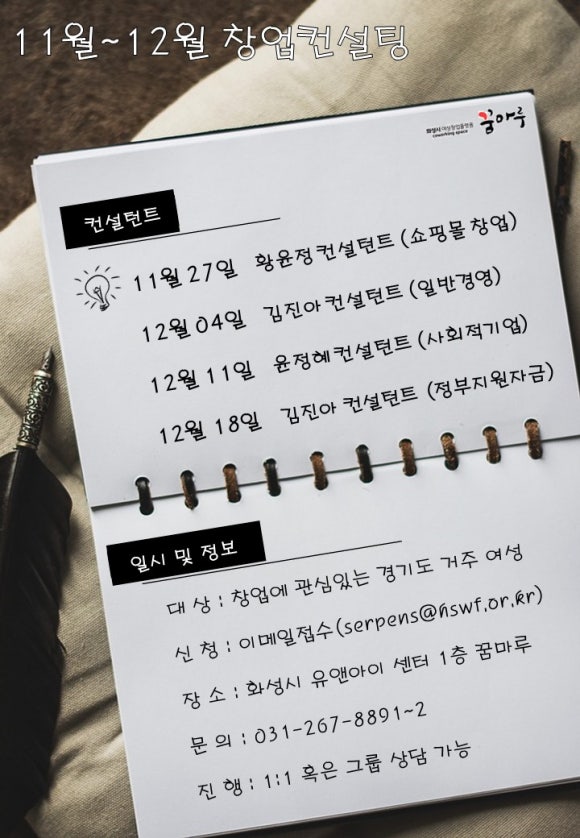 11월~12월 창업컨설팅
화성시 여성창업플랫폼 꿈마루
coworking space
컨설턴트
11월 27일 황윤정 컨설턴트 (쇼핑몰 창업)
12월 04일 김진아 컨설턴트 (일반경영)
12월 11일 윤정혜 컨설턴트 (사회적기업)
12월 18일 김진아 컨설턴트 (정부지원자금)
일시 및 정보
대 상 : 창업에 관심있는 경기도 거주 여성
신 청 : 이메일접수(serpens@hswf.or.kr)
장 소 : 화성시 유앤아이 센터 1층 꿈마루
문 의 : 031-267-8891~2
진 행 : 1:1 혹은 그룹 상담 가능